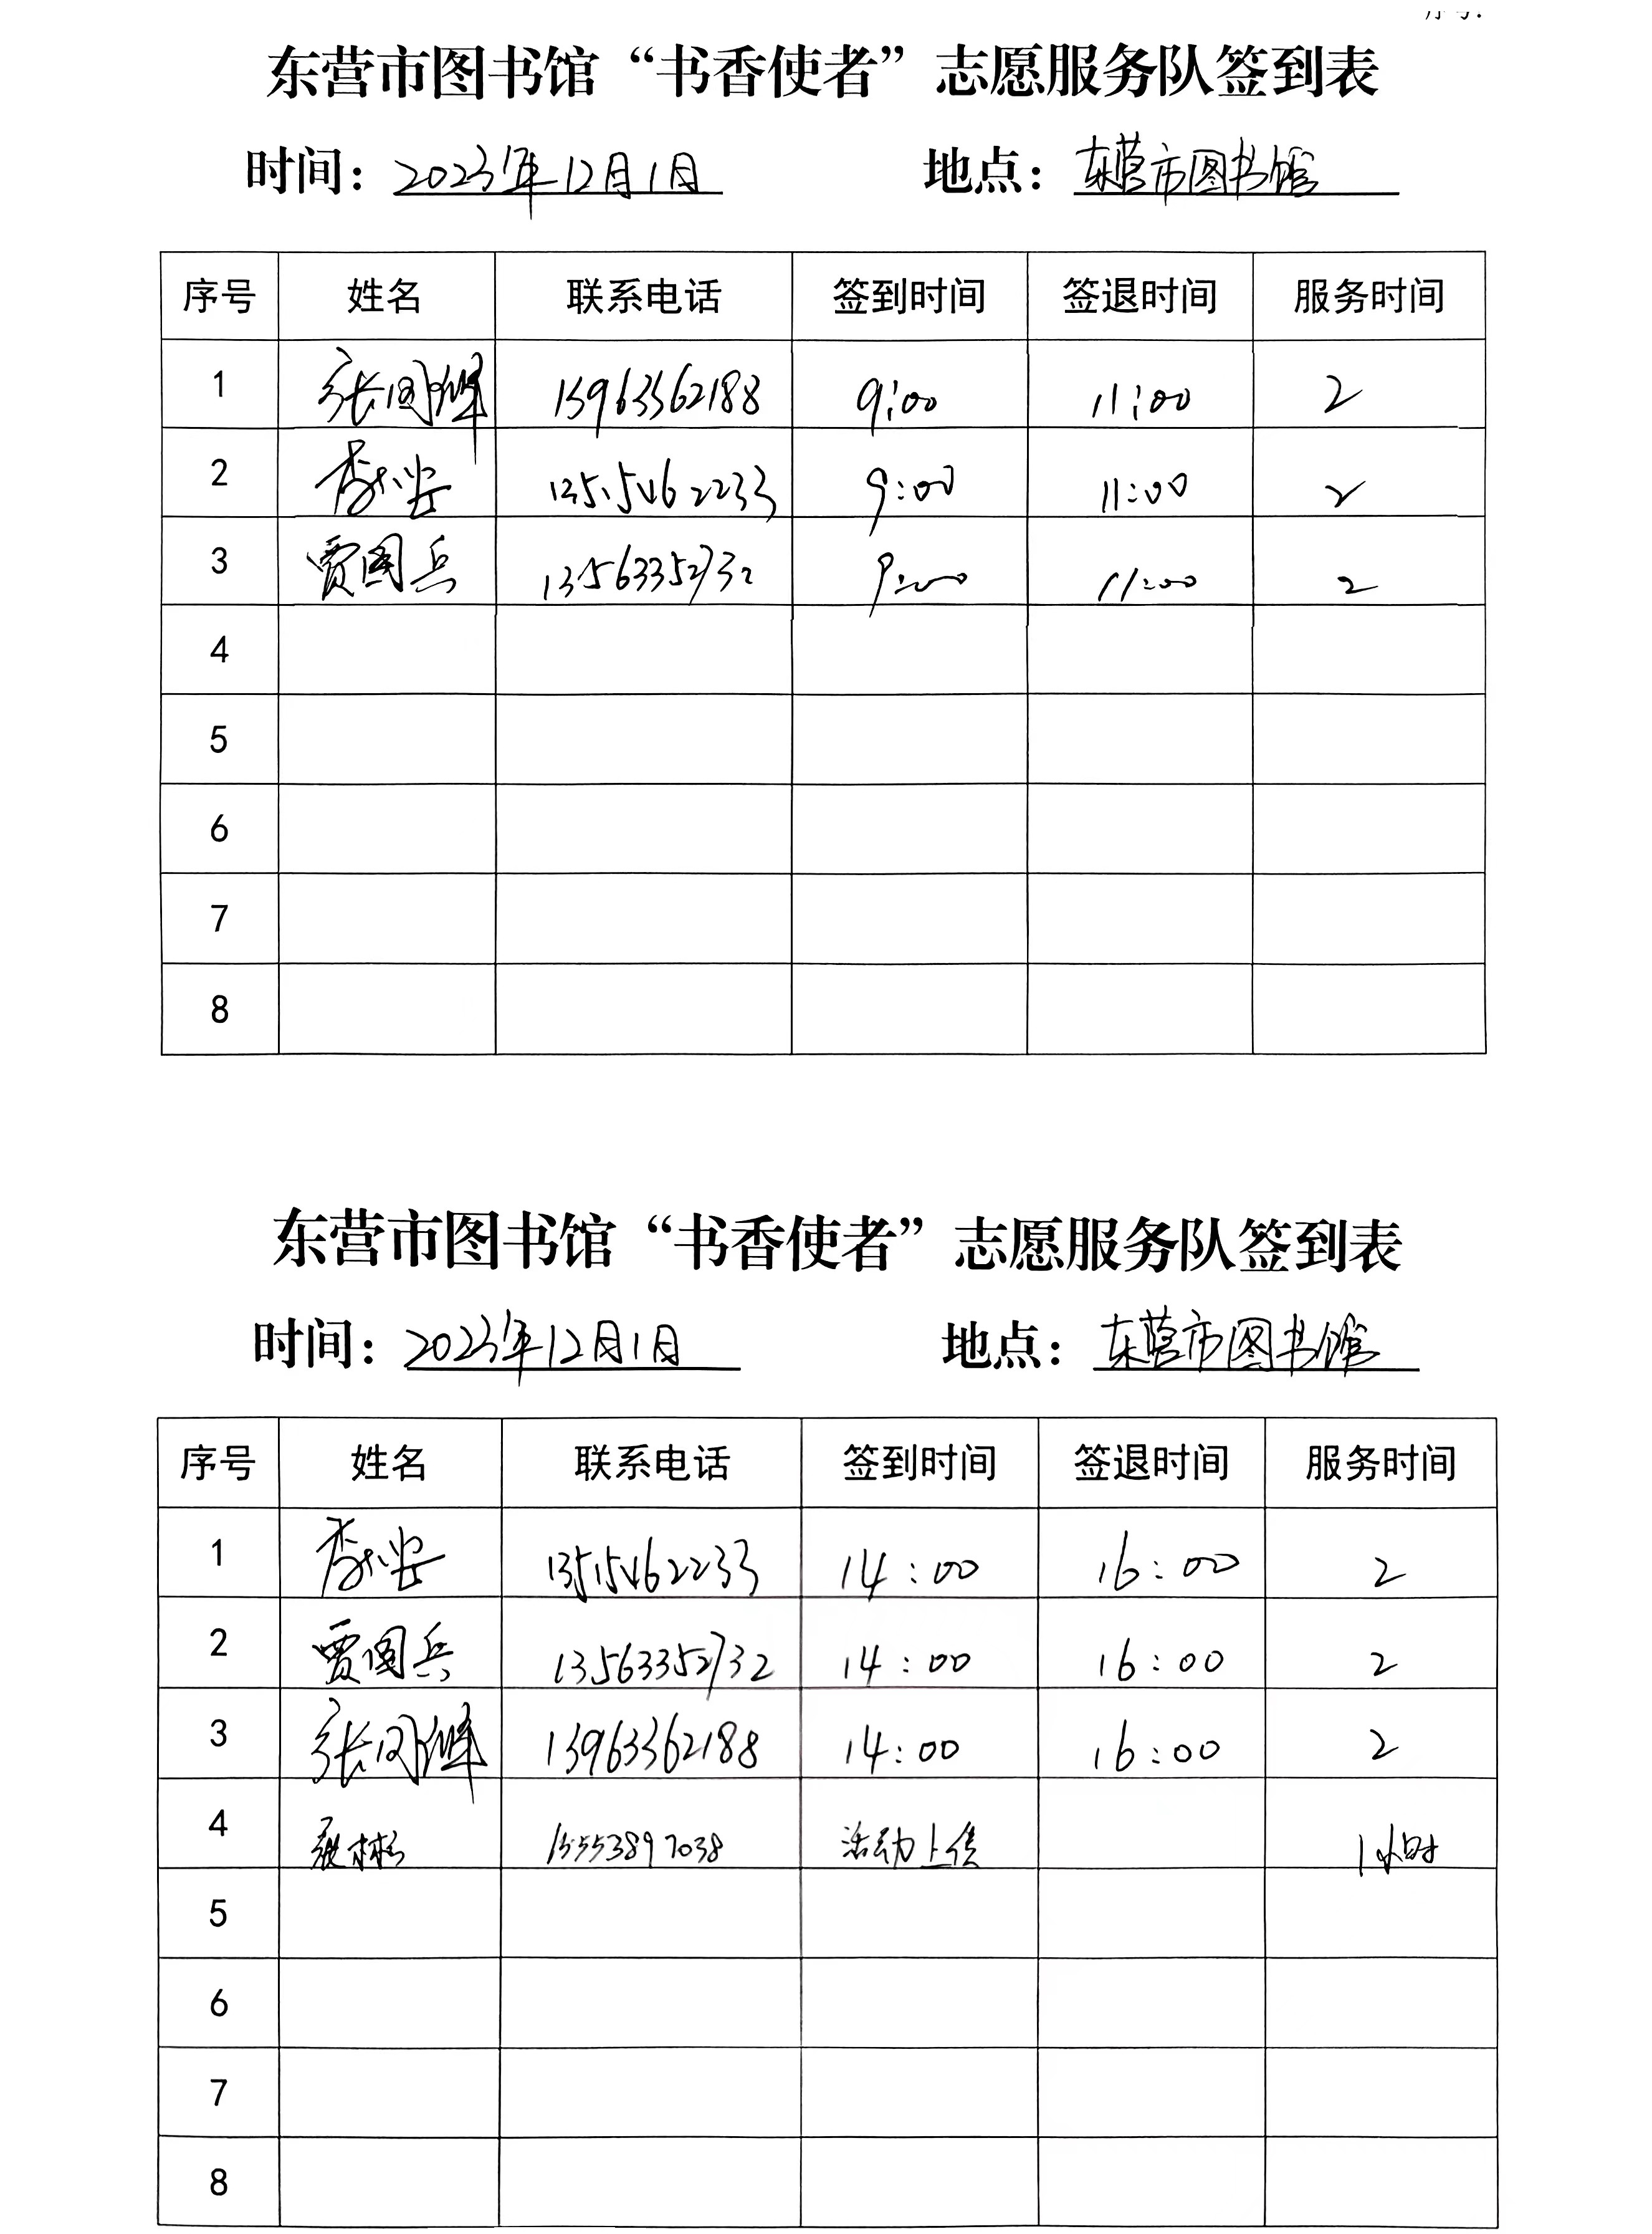 东营市图书馆“书香使者”志愿服务队签到表
时间：2023年12月1日 地点：东营市图书馆
序号 姓名 联系电话 签到时间 签退时间 服务时间
1 张同峰 13963362188 9:00 11:00 2
2 13515462233 9:00 11:00 2
3 贾国兵 13563352732 9:00 11:00 2
4
5
6
7
8
东营市图书馆“书香使者”志愿服务队签到表
时间：2023年12月1日 地点：东营市图书馆
序号 姓名 联系电话 签到时间 签退时间 服务时间
1 13515462233 14:00 16:00 2
2 贾国兵 13563352732 14:00 16:00 2
3 张同峰 13963362188 14:00 16:00 2
4 15553897038 活动上传 1小时
5
6
7
8